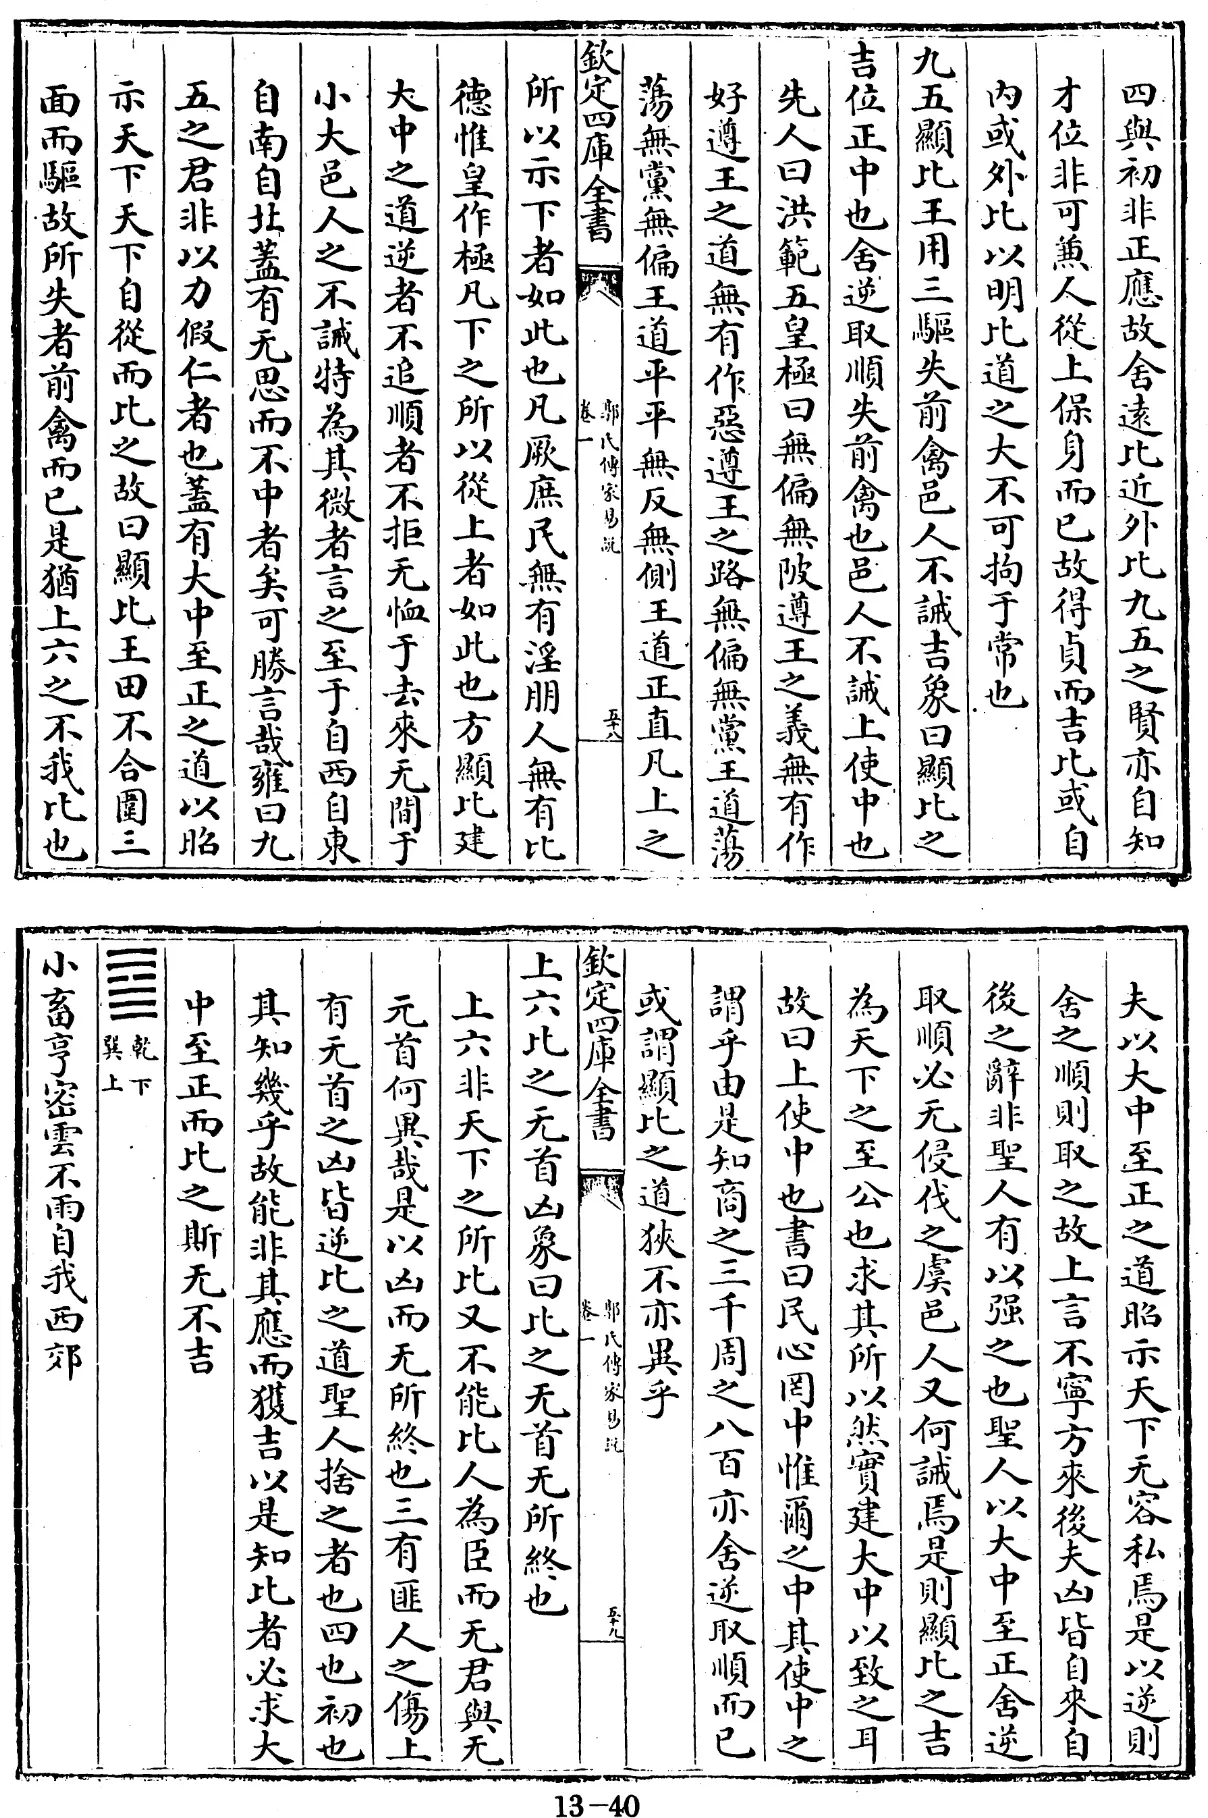 四與初非正應故舍遠比近外比九五之賢亦自知
才位非可兼人從上保身而已故得貞而吉比或自
内或外比以明比道之大不可拘于常也
九五顯比王用三驅失前禽邑人不誡吉象曰顯比之
吉位正中也舍逆取順失前禽也邑人不誡上使中也
先人曰洪範五皇極曰無偏無陂遵王之義無有作
好遵王之道無有作惡遵王之路無偏無黨王道蕩
蕩無黨無偏王道平平無反無側王道正直凡上之
欽定四庫全書
郭氏傳家易説
卷一
五十八
所以示下者如此也凡厥庶民無有淫朋人無有比
德惟皇作極凡下之所以從上者如此也方顯比建
大中之道逆者不追順者不拒无恤于去來无間于
小大邑人之不誡特為其微者言之至于自西自東
自南自北蓋有无思而不中者矣可勝言哉雍曰九
五之君非以力假仁者也蓋有大中至正之道以昭
示天下天下自從而比之故曰顯比王田不合圍三
面而驅故所失者前禽而已是猶上六之不我比也
夫以大中至正之道昭示天下无容私焉是以逆則
舍之順則取之故上言不寧方來後夫凶皆自來自
後之辭非聖人有以强之也聖人以大中至正舍逆
取順必无侵伐之虞邑人又何誡焉是則顯比之吉
為天下之至公也求其所以然實建大中以致之耳
故曰上使中也書曰民心罔中惟爾之中其使中之
謂乎由是知商之三千周之八百亦舍逆取順而已
或謂顯比之道狹不亦異乎
欽定四庫全書
郭氏傳家易説
卷一
五十九
上六比之无首凶象曰比之无首无所終也
上六非天下之所比又不能比人為臣而无君與无
元首何異哉是以凶而无所終也三有匪人之傷上
有无首之凶皆逆比之道聖人捨之者也四也初也
其知幾乎故能非其應而獲吉以是知比者必求大
中至正而比之斯无不吉
乾下
巽上
小畜亨密雲不雨自我西郊
13-40